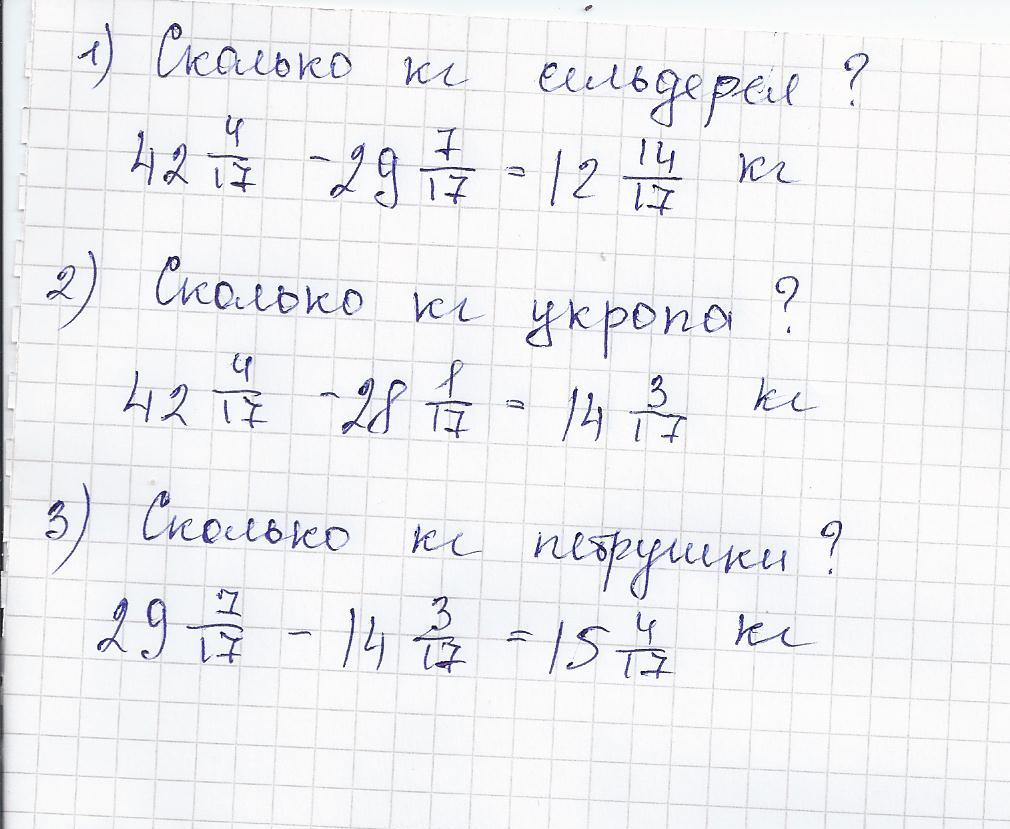 1) Сколько кг сельдерея ?
42 4/17 - 29 7/17 = 12 14/17 кг
2) Сколько кг укропа ?
42 4/17 - 28 1/17 = 14 3/17 кг
3) Сколько кг петрушки ?
29 7/17 - 14 3/17 = 15 4/17 кг